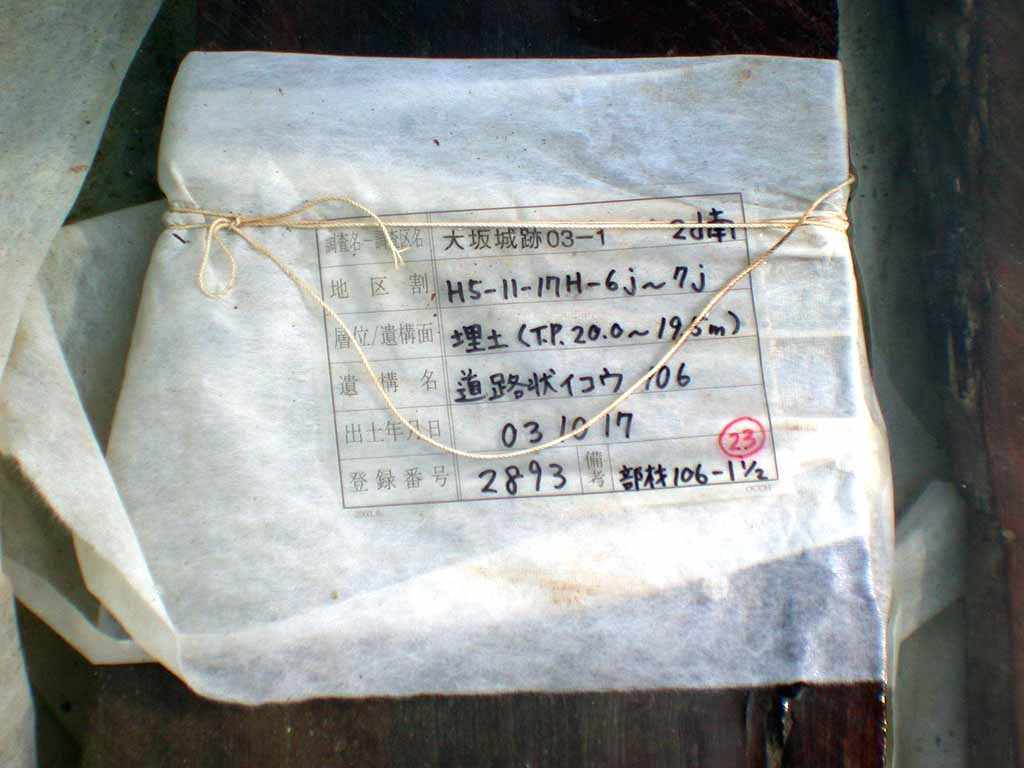 調査名-調査区名 大坂城跡03-1 2d南
地区割 H5-11-17H-6j～7j
層位/遺構面 埋土(T.P.20.0～19.5m)
遺構名 道路状イコウ 106
出土年月日 03 10 17
23
登録番号 2893 備考 部材106-1 1/2
OCCH